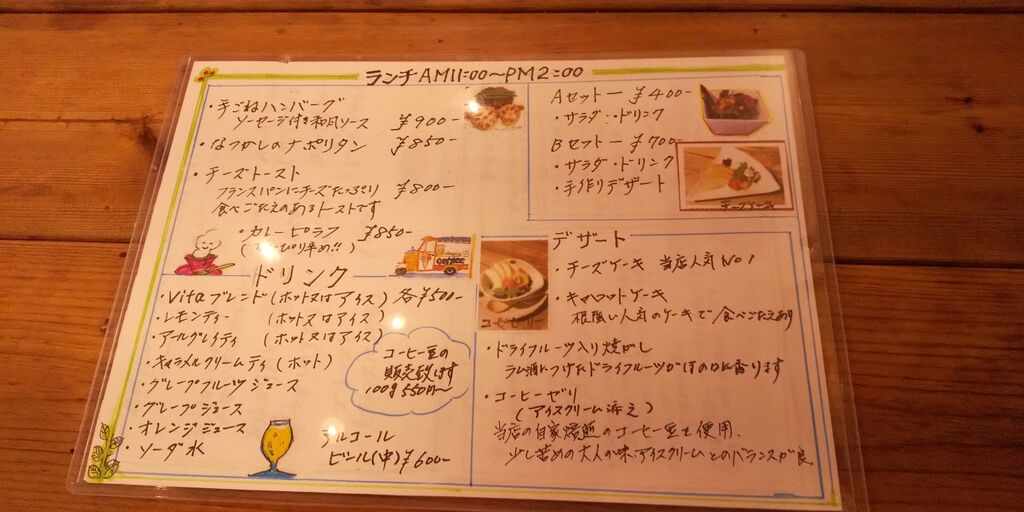 ランチ AM11:00〜PM2:00
・手ごねハンバーグ
ソーセージ付き和風ソース ¥900-
・なつかしのナポリタン ¥850-
・チーズトースト
フランスパンにチーズたっぷり ¥800-
食べごたえのあるトーストです
・カレーピラフ ¥850-
(ちょっぴり辛め!!)
Aセット ー ¥400-
・サラダ・ドリンク
Bセット ー ¥700-
・サラダ・ドリンク
・手作りデザート
チーズケーキ
Coffee
ドリンク
・Vitaブレンド(ホット又はアイス) 各¥500-
・レモンティー (ホット又はアイス)
・アールグレイティ (ホット又はアイス)
・キャラメルクリームティ(ホット)
・グレープフルーツジュース
・グレープジュース
・オレンジジュース
・ソーダ水
コーヒー豆の
販売致します
100g 550円〜
アルコール
ビール(中)¥600-
デザート
・チーズケーキ 当店人気No1
・キャロットケーキ
根強い人気のケーキで食べごたえあり
コーヒーゼリー
・ドライフルーツ入り焼がし
ラム酒につけたドライフルーツがほのかに香ります
・コーヒーゼリ
(アイスクリーム添え)
当店の自家焙煎のコーヒー豆を使用.
少し苦めの大人の味.アイスクリームとのバランスが良